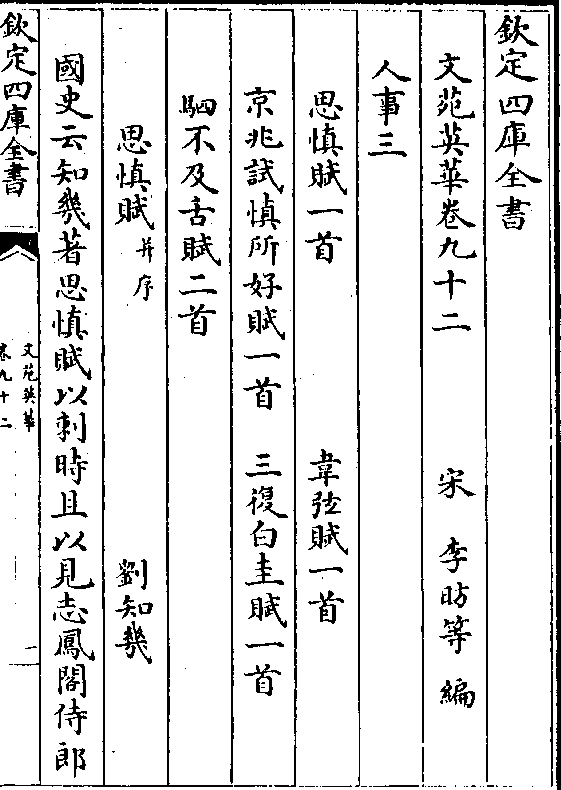 欽定四庫全書
文苑英華卷九十二　宋　李昉等　編
人事三
思慎賦一首　韋弦賦一首
京兆試慎所好賦一首　三復白圭賦一首
駟不及舌賦二首
思慎賦并序　劉知幾
國史云知幾著思慎賦以刺時且以見志鳳閣侍郎
欽定四庫全書
文苑英華
卷九十二
一